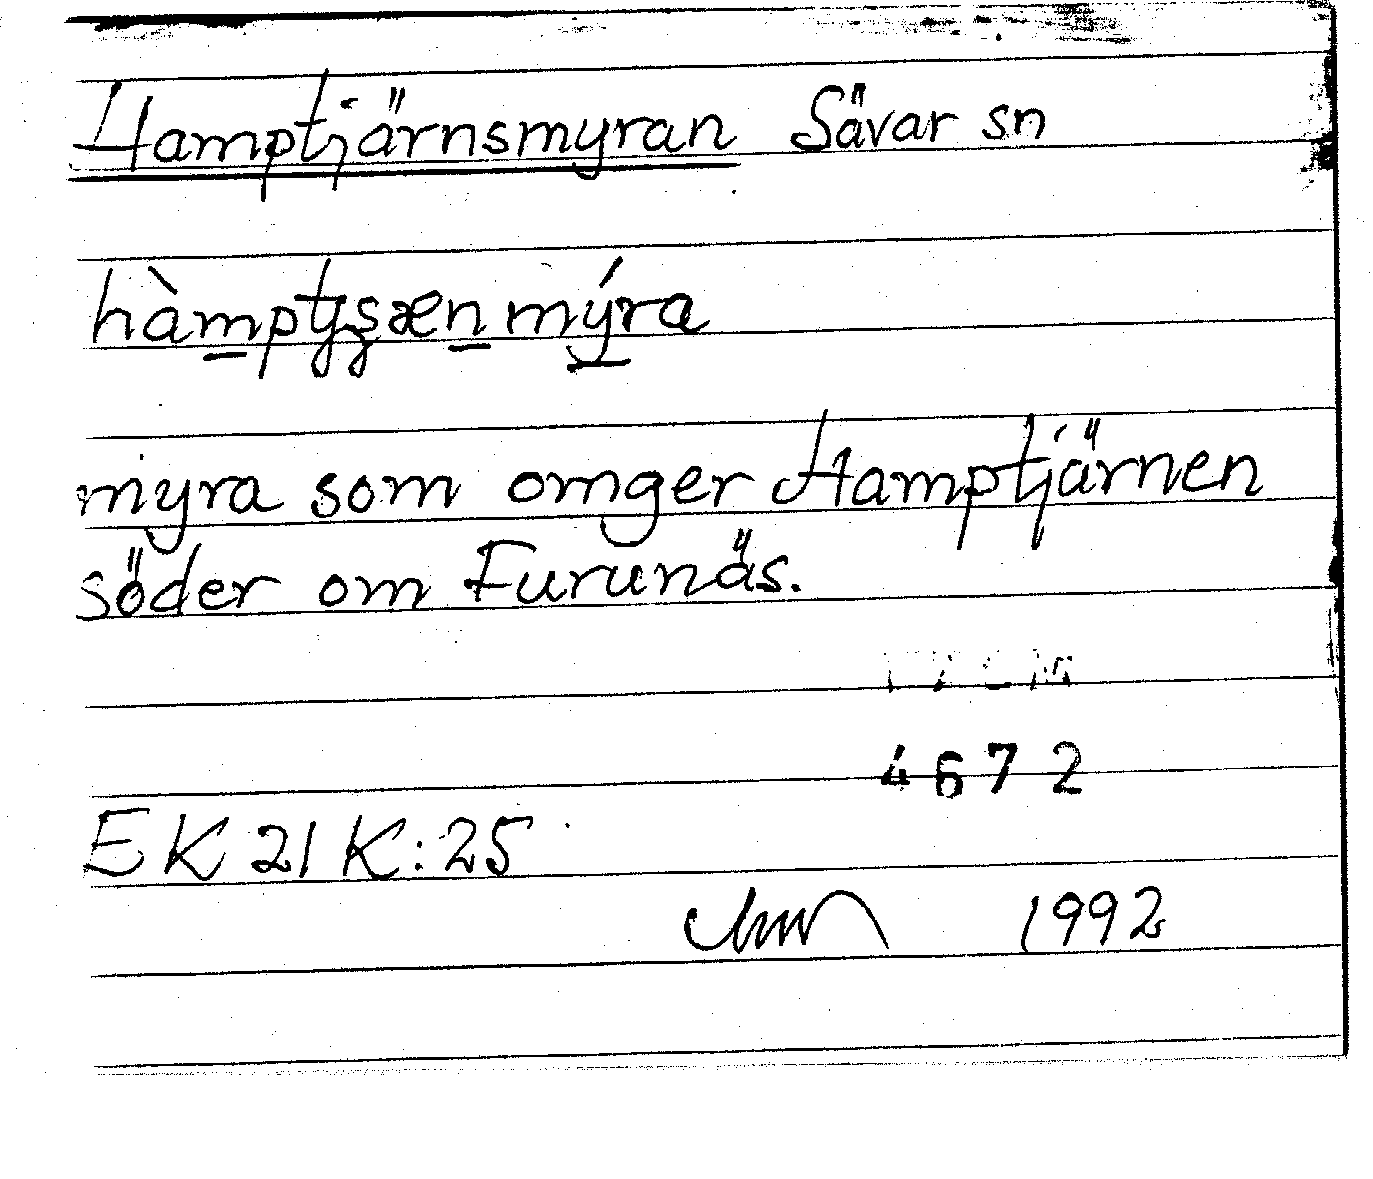 Hamptjärnsmyran Sävar sn
myra som omger Hamptjärnen
söder om Furunäs.
4672
EK 21 K:25
1992